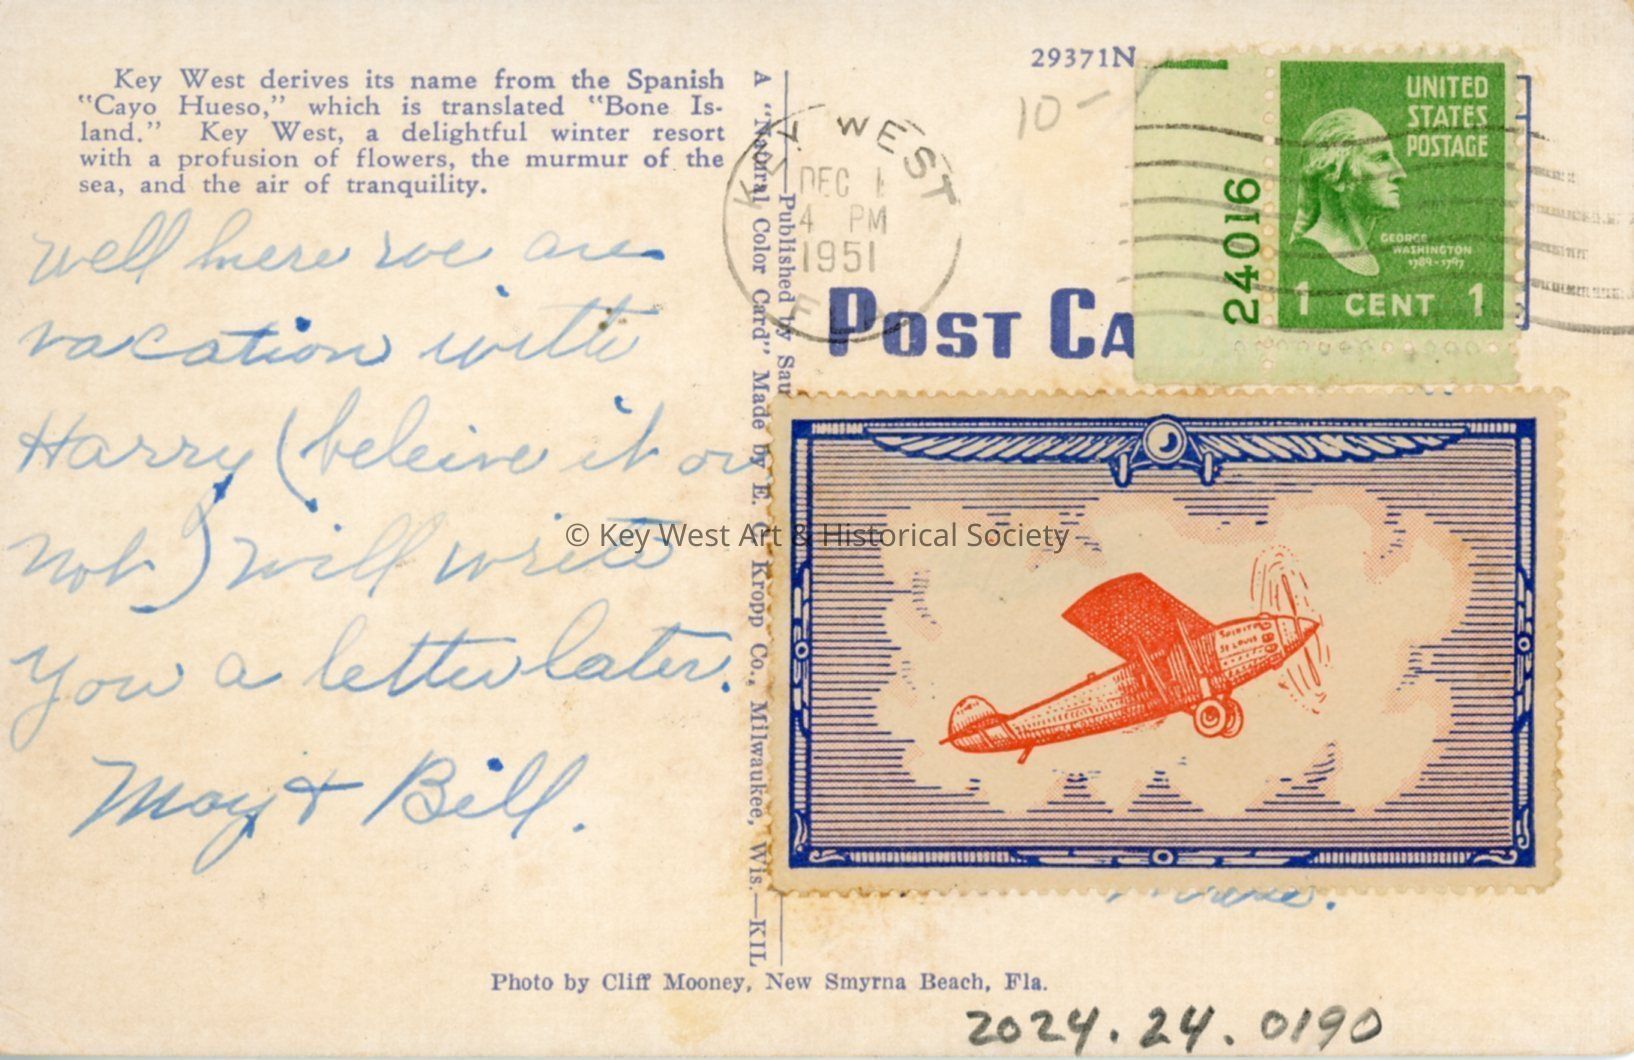 Key West derives its name from the Spanish
"Cayo Hueso," which is translated "Bone Is-
land." Key West, a delightful winter resort
with a profusion of flowers, the murmur of the
sea, and the air of tranquility.
well here we are
vacation with
Harry (beleive it or
not) will write
you a letter later.
May + Bill.
A "Natural Color Card" Made by E. C. Kropp Co., Milwaukee, Wis.—KIL
Published by
29371N
10-
KEY WEST
DEC 1
4 PM
1951
POST CA
24016
UNITED
STATES
POSTAGE
GEORGE
WASHINGTON
1789-1797
1 CENT 1
SPIRIT OF
ST LOUIS
© Key West Art & Historical Society
Photo by Cliff Mooney, New Smyrna Beach, Fla.
2024.24.0190